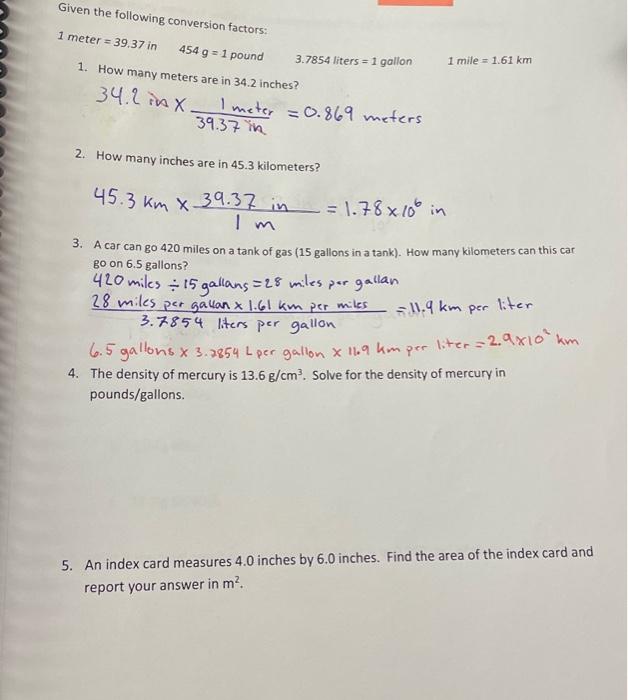 Given the following conversion factors:
1 meter = 39.37 in 454 g = 1 pound 3.7854 liters = 1 gallon 1 mile = 1.61 km
1. How many meters are in 34.2 inches?
34.2 in x 1 meter = 0.869 meters
39.37 in
2. How many inches are in 45.3 kilometers?
45.3 km x 39.37 in = 1.78 x 10⁶ in
1 m
3. A car can go 420 miles on a tank of gas (15 gallons in a tank). How many kilometers can this car
go on 6.5 gallons?
420 miles ÷ 15 gallons = 28 miles per gallan
28 miles per gallon x 1.61 km per miles = 11.9 km per liter
3.7854 liters per gallon
6.5 gallons x 3.7854 L per gallon x 11.9 km per liter = 2.9x10² km
4. The density of mercury is 13.6 g/cm³. Solve for the density of mercury in
pounds/gallons.
5. An index card measures 4.0 inches by 6.0 inches. Find the area of the index card and
report your answer in m².